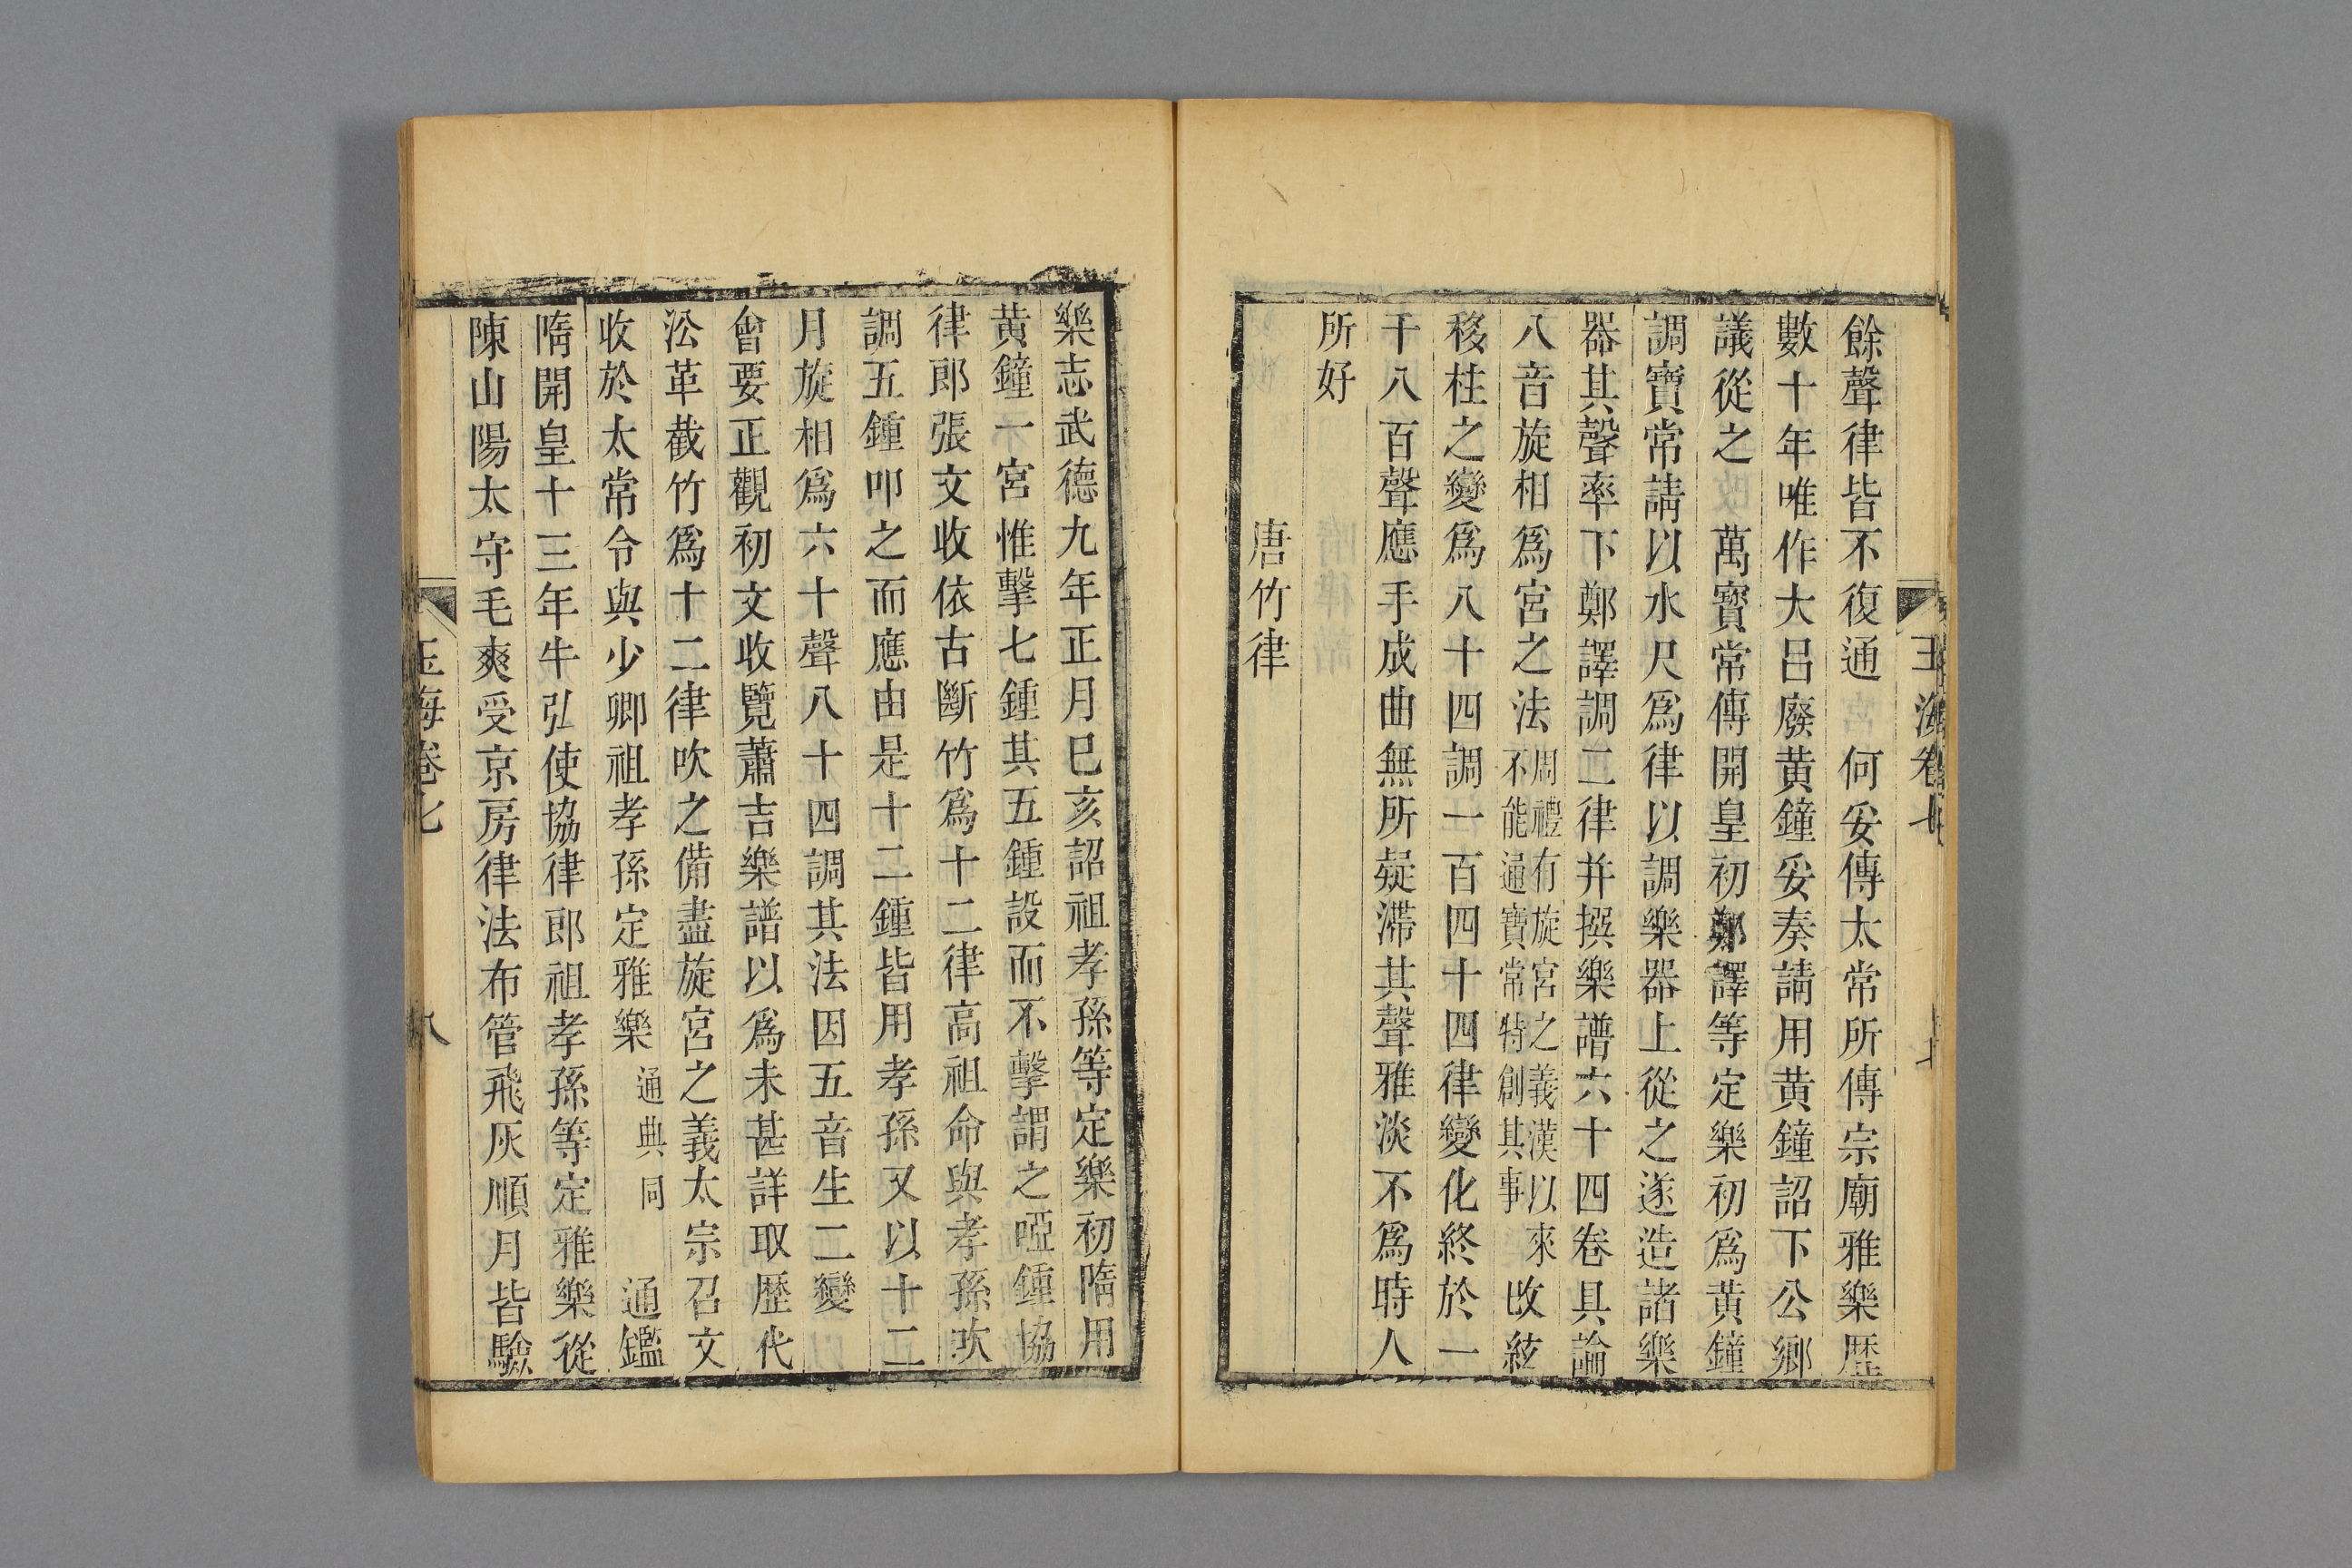 玉海卷七
七
餘聲律皆不復通 何妥傳太常所傳宗廟雅樂歷
數十年唯作大呂廢黄鐘妥奏請用黄鐘詔下公卿
議從之 萬寳常傳開皇初鄭譯等定樂初爲黄鐘
調寶常請以水尺爲律以調樂器上從之遂造諸樂
器其聲率下鄭譯調二律并撰樂譜六十四卷具論
八音旋相爲宮之法周禮有旋宮之義漢以來不能通寶常特創其事改絃
移柱之變爲八十四調一百四十四律變化終於一
千八百聲應手成曲無所疑滯其聲雅淡不爲時人
所好
唐竹律
樂志武德九年正月巳亥詔祖孝孫等定樂初隋用
黄鐘一宮惟擊七鍾其五鍾設而不擊謂之啞鍾協
律郎張文收依古斷竹爲十二律高祖命與孝孫吹
調五鍾叩之而應由是十二鍾皆用孝孫又以十二
月旋相爲六十聲八十四調其法因五音生二變
會要正觀初文收覽蕭吉樂譜以爲未甚詳取歷代
㳂革截竹爲十二律吹之備盡旋宮之義太宗召文
收於太常令與少卿祖孝孫定雅樂通典同 通鑑
隋開皇十三年牛弘使協律郎祖孝孫等定雅樂從
陳山陽太守毛爽受京房律法布管飛灰順月皆驗
玉海卷七
八